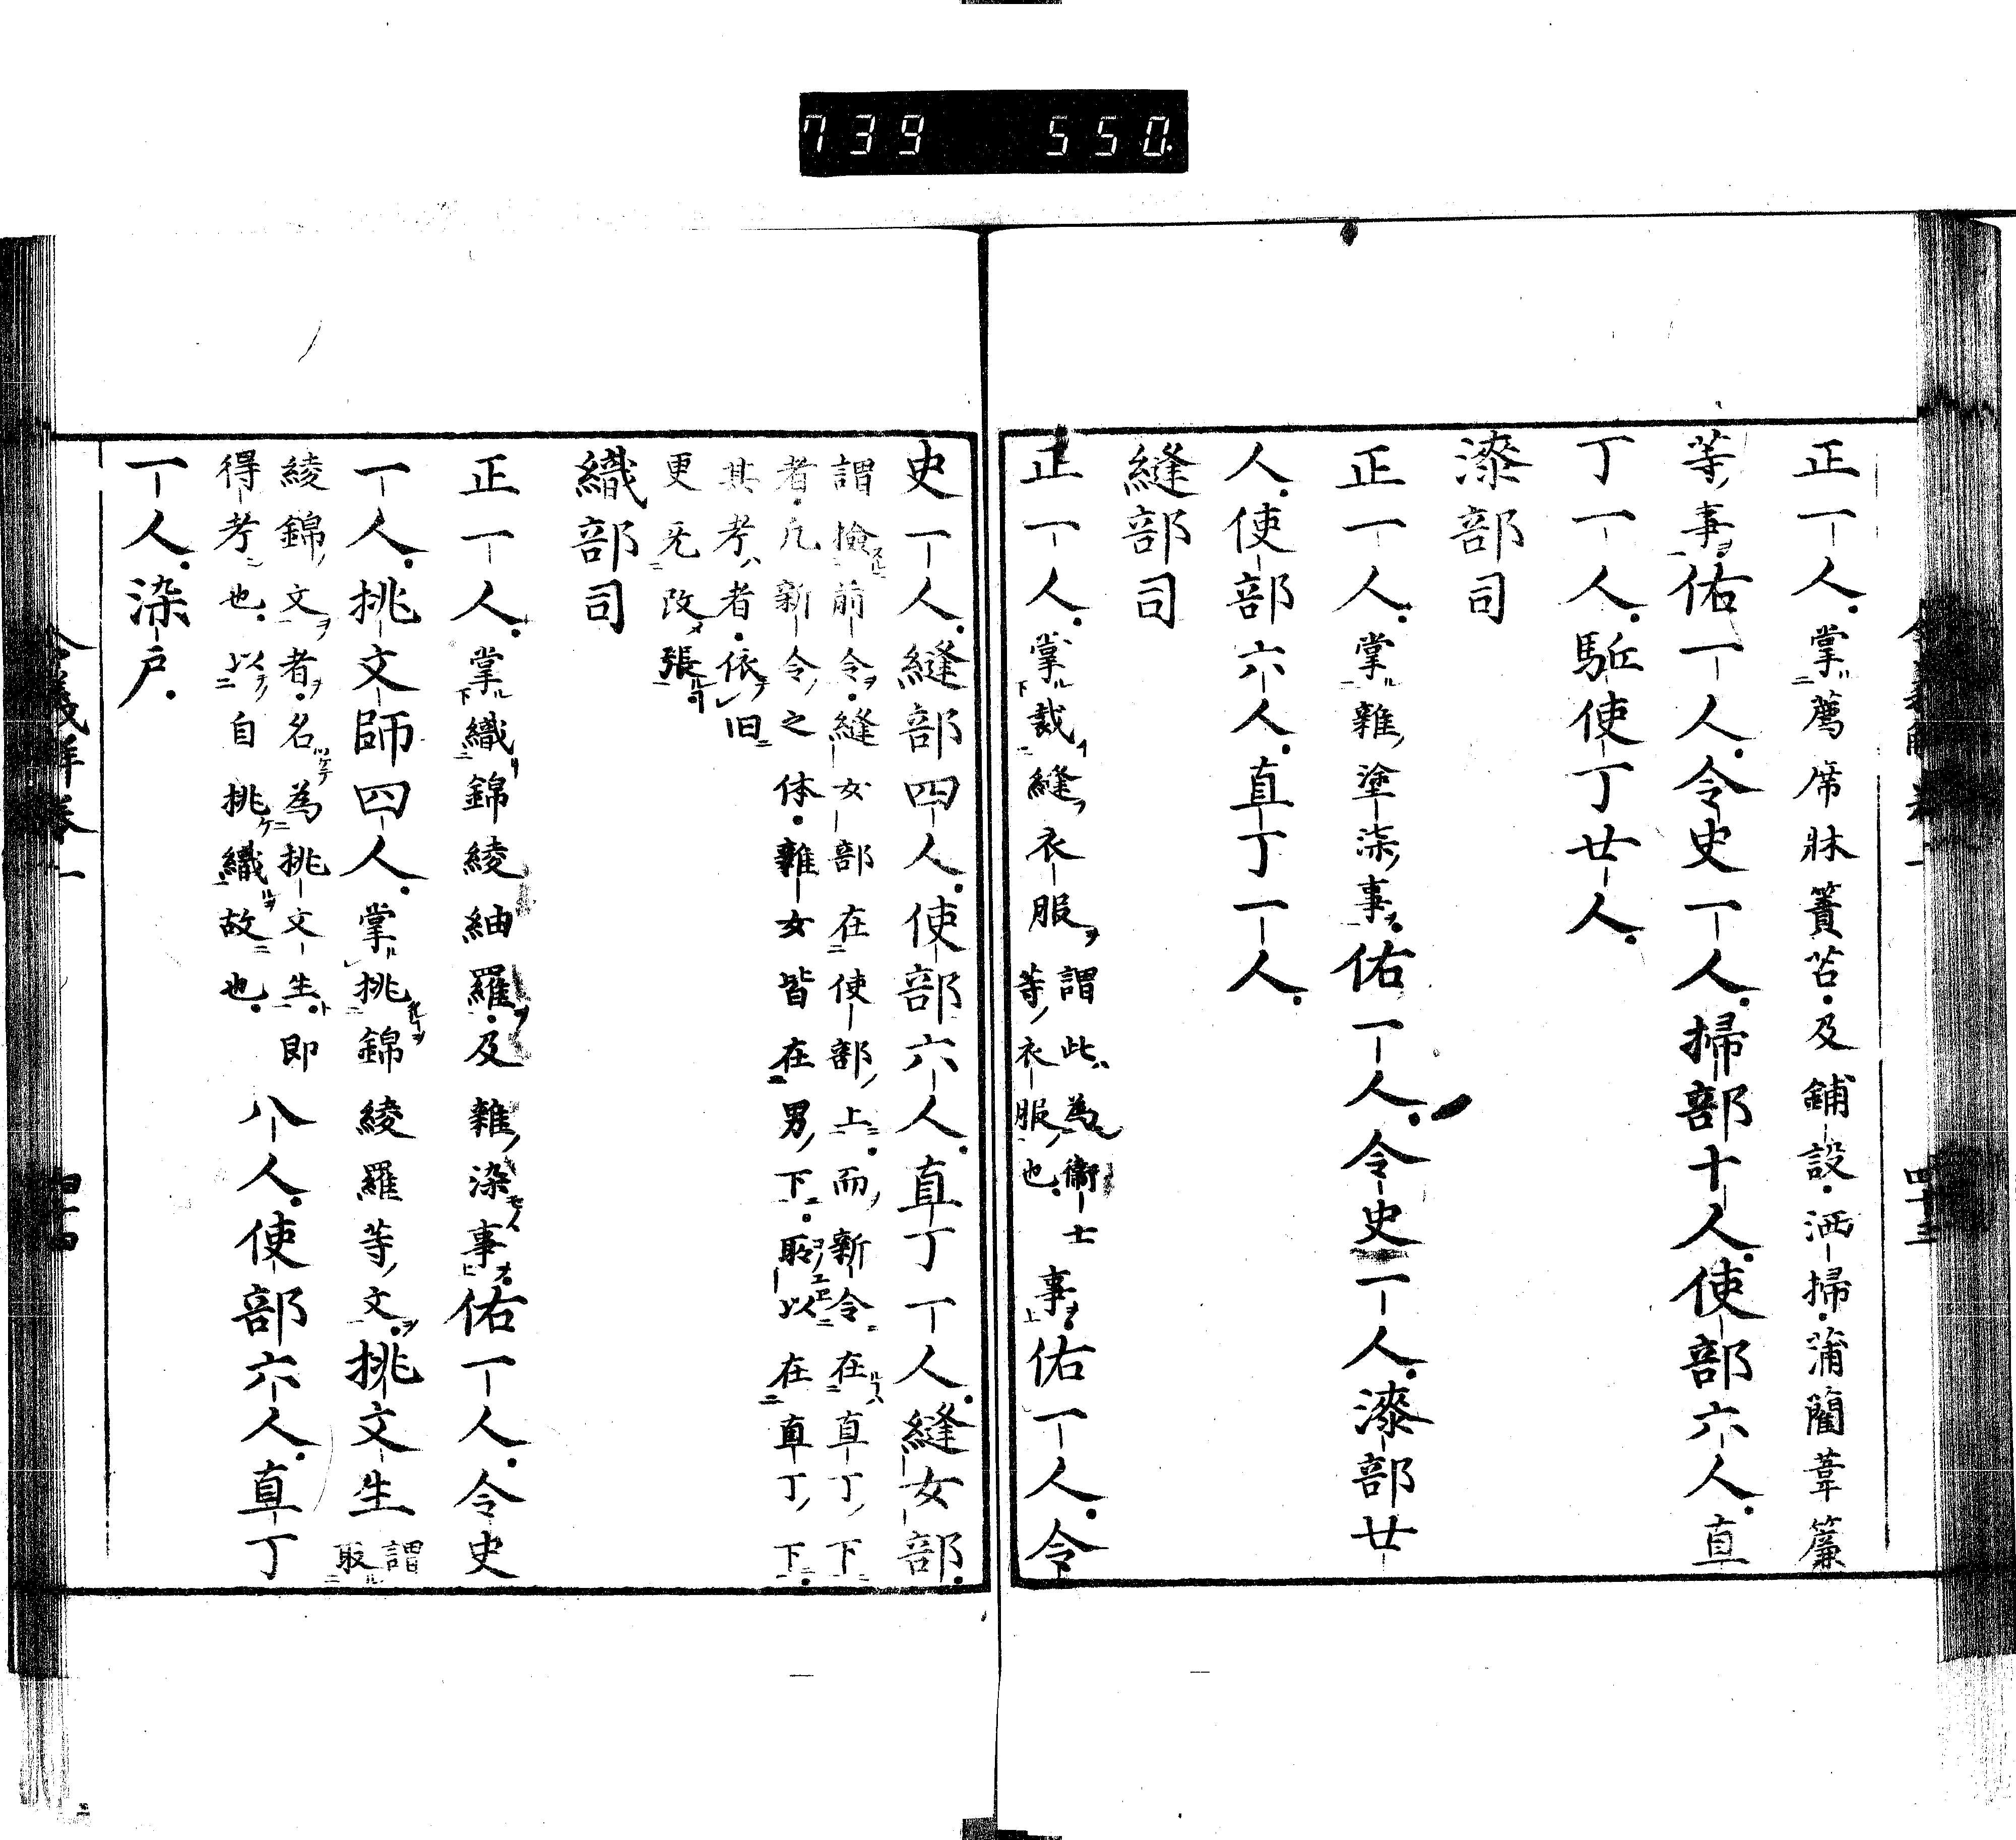 739 550
正一人掌薦席牀簀苫及鋪設洒掃蒲藺葦簾
等事佑一人令史一人掃部十人使部六人直
丁一人駈使丁廿人
漆部司
正一人掌雜塗漆事佑一人令史一人漆部廿
人使部六人直丁一人
縫部司
正一人掌裁縫衣服謂此為衛士等衣服也事佑一人令
史一人縫部四人使部六人直丁一人縫女部
謂撿前令縫女部在使部上而新令在直丁下
者凡新令之体雜女皆在男下所以在直丁下
其考者依旧
更无改張
織部司
正一人掌織錦綾紬羅及雜染事佑一人令史
一人挑文師四人掌挑錦綾羅等文挑文生謂取
綾錦文者名為挑文生即
得考也以自挑織故也
八人使部六人直丁
一人染戸
令義解卷一 四十三
令義解卷一 四十四